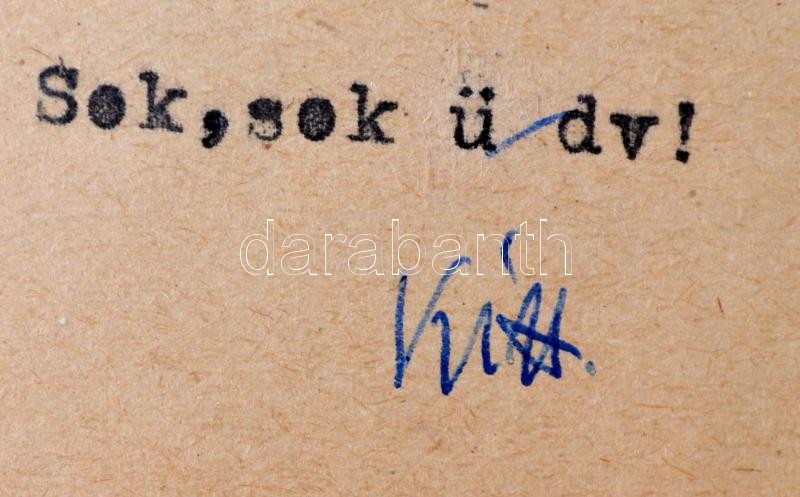 Sok, sok ü dv!
darabanth
Kitt.